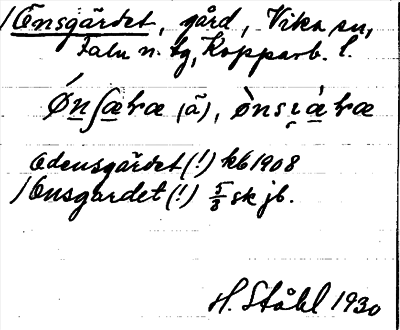 /Onsgärdet, gård, Vika sn,
Falu n. tg, Kopparb. l.
Ǿnʃæræ (ä), ònsı̯àræ
Odensgärdet (!) kb 1908
/Onsgardet (!) 5/8 sk jb.
H. Ståhl 1930